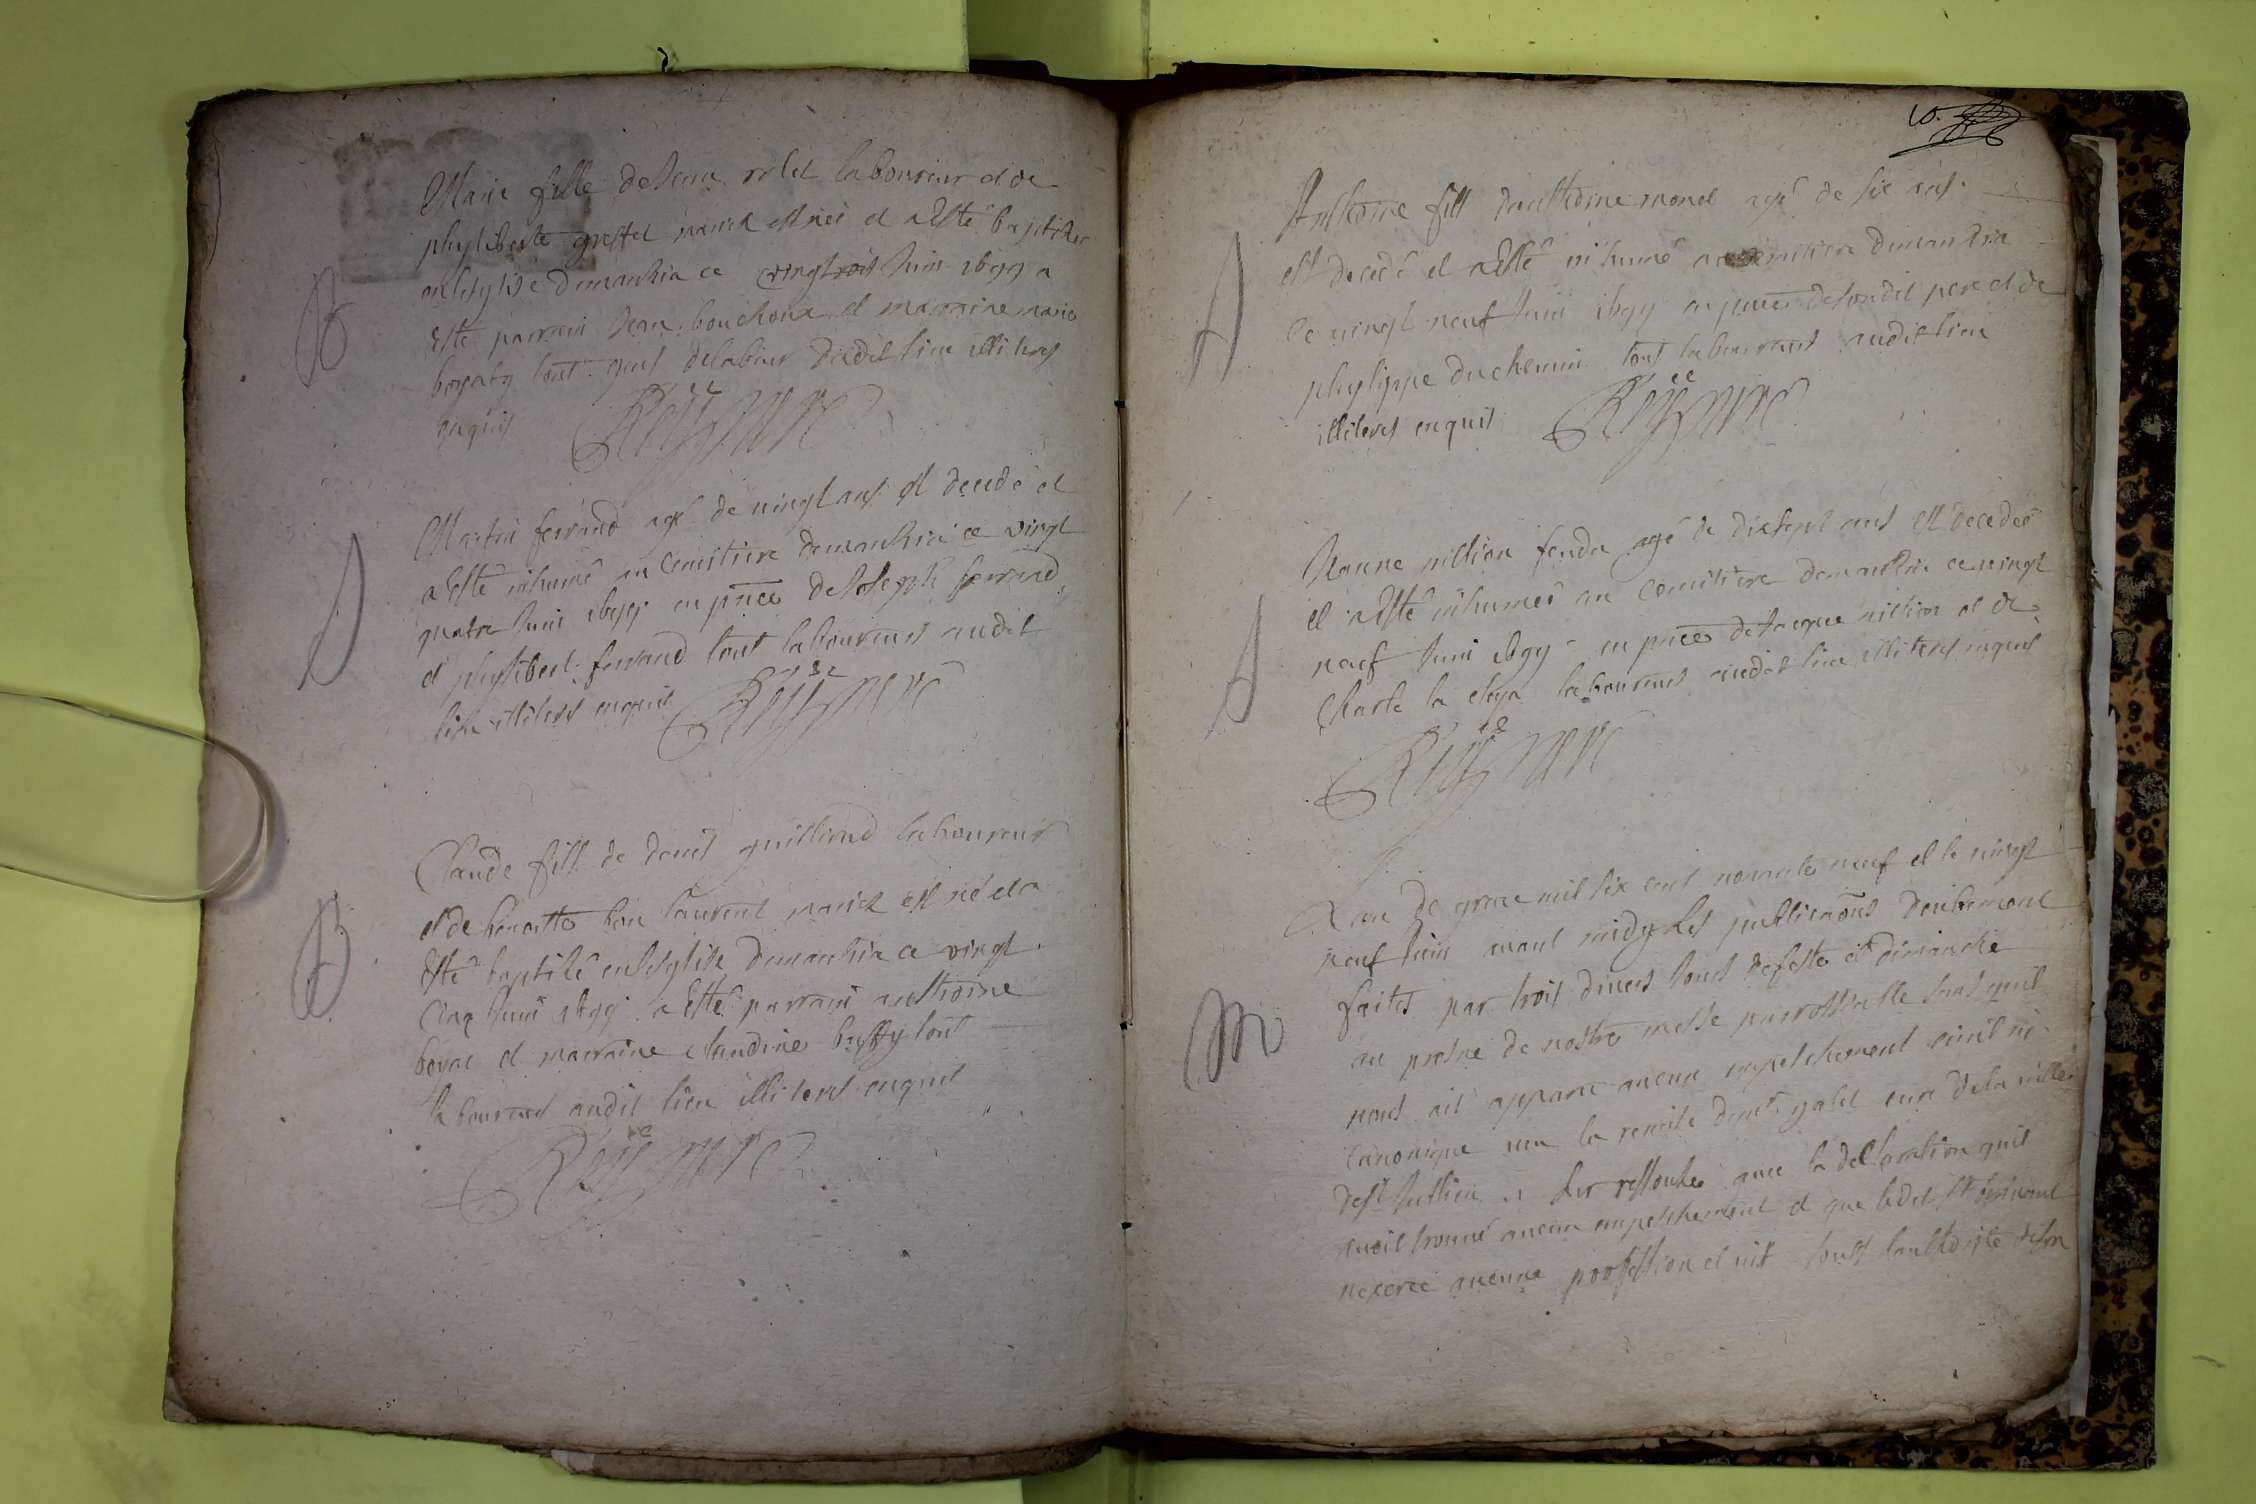 B
Marie fille de Jean rolet laboureur et de
phyliberte grostel mariez est née et a Esté baptisée
en lesglise demanthia ce vingtrois Juin 1699 a
Esté parrain Jean bouchoux et marraine marie
tout gens delabeur dudit lieu illiteres
enquis
Martin ferrand agé de vingt ans est decedé et
a Esté inhumé au Cemitiere demanthia ce vingt
quatre Juin 1699 en pnce deJoseph ferrand
et phylibert ferrand tout laboureurs audit
lieu illiteres enquis
B
Claude fils de denis guilliond laboureur
et de benoitte bon laurent mariez est né et a
Esté baptisé enlesglise demanthia ce vingt
cinq Juin 1699 a Esté parrain anthoine
et marraine claudine buffy tout
laboureurs audit lieu illiteres enquis
10.
Anthoine fils danthoine monet agé de six ans
est decedé et a Esté inhumé au cemitiere demanthia
ce vingt neuf Juin 1699 en pnce desondit pere et de
phylippe duchemin tout laboureurs audit lieu
illiteres enquis
Jeanne agé de dixsept ans est decedée
et a Esté inhumée au cemitiere demanthia ce vingt
neuf Juin 1699 en pnce deJacque et de
Charle la laboureurs audit lieu illiteres enquis
M
Lan de grace mil six cent nonante neuf et le vingt
neuf Juin avant midy les publicaons deuhement
faites par trois divers Jours defeste et dimanche
au prosne de nostre messe parrossialle sans quil
nous ait apparu aucun empeschement civil ni
canonique veu la remise de mr galet curé dela ville
dest Jullien sur ressouse avec la declaration quil
navoit trouvé aucun empeschement et que ledit
nexerce aucune profession et vit sous lauthorite deson